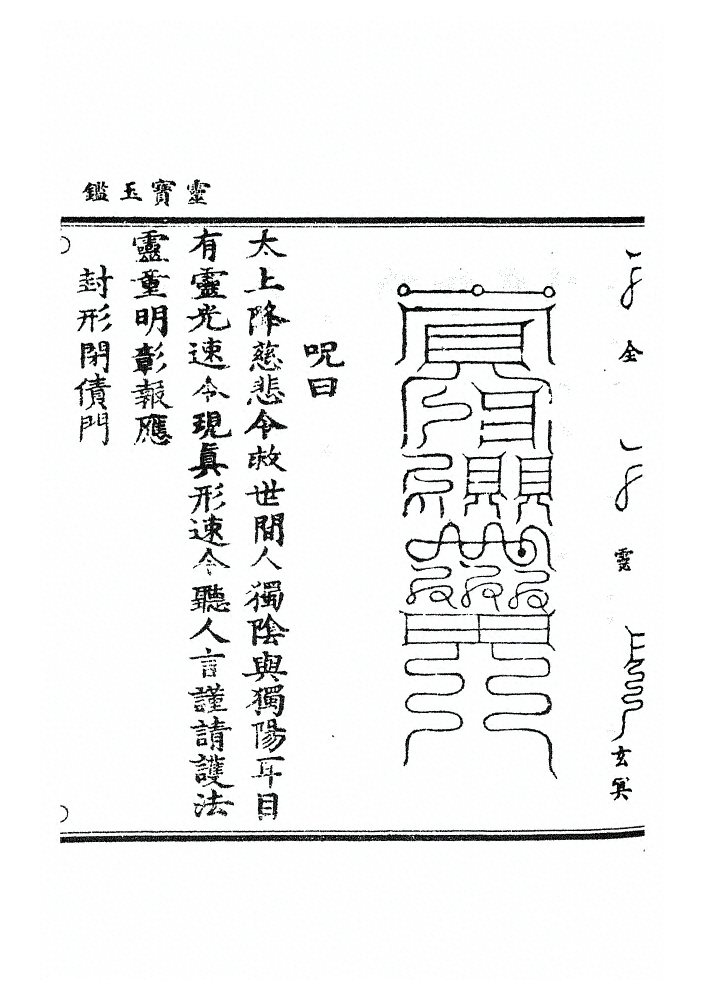 靈寶玉鑑
全 靈 玄冥
呪曰
太上降慈悲令救世間人獨陰與獨陽耳目
有靈光速令現眞形速令聽人言謹請護法
靈童明彰報應
封形閉債門